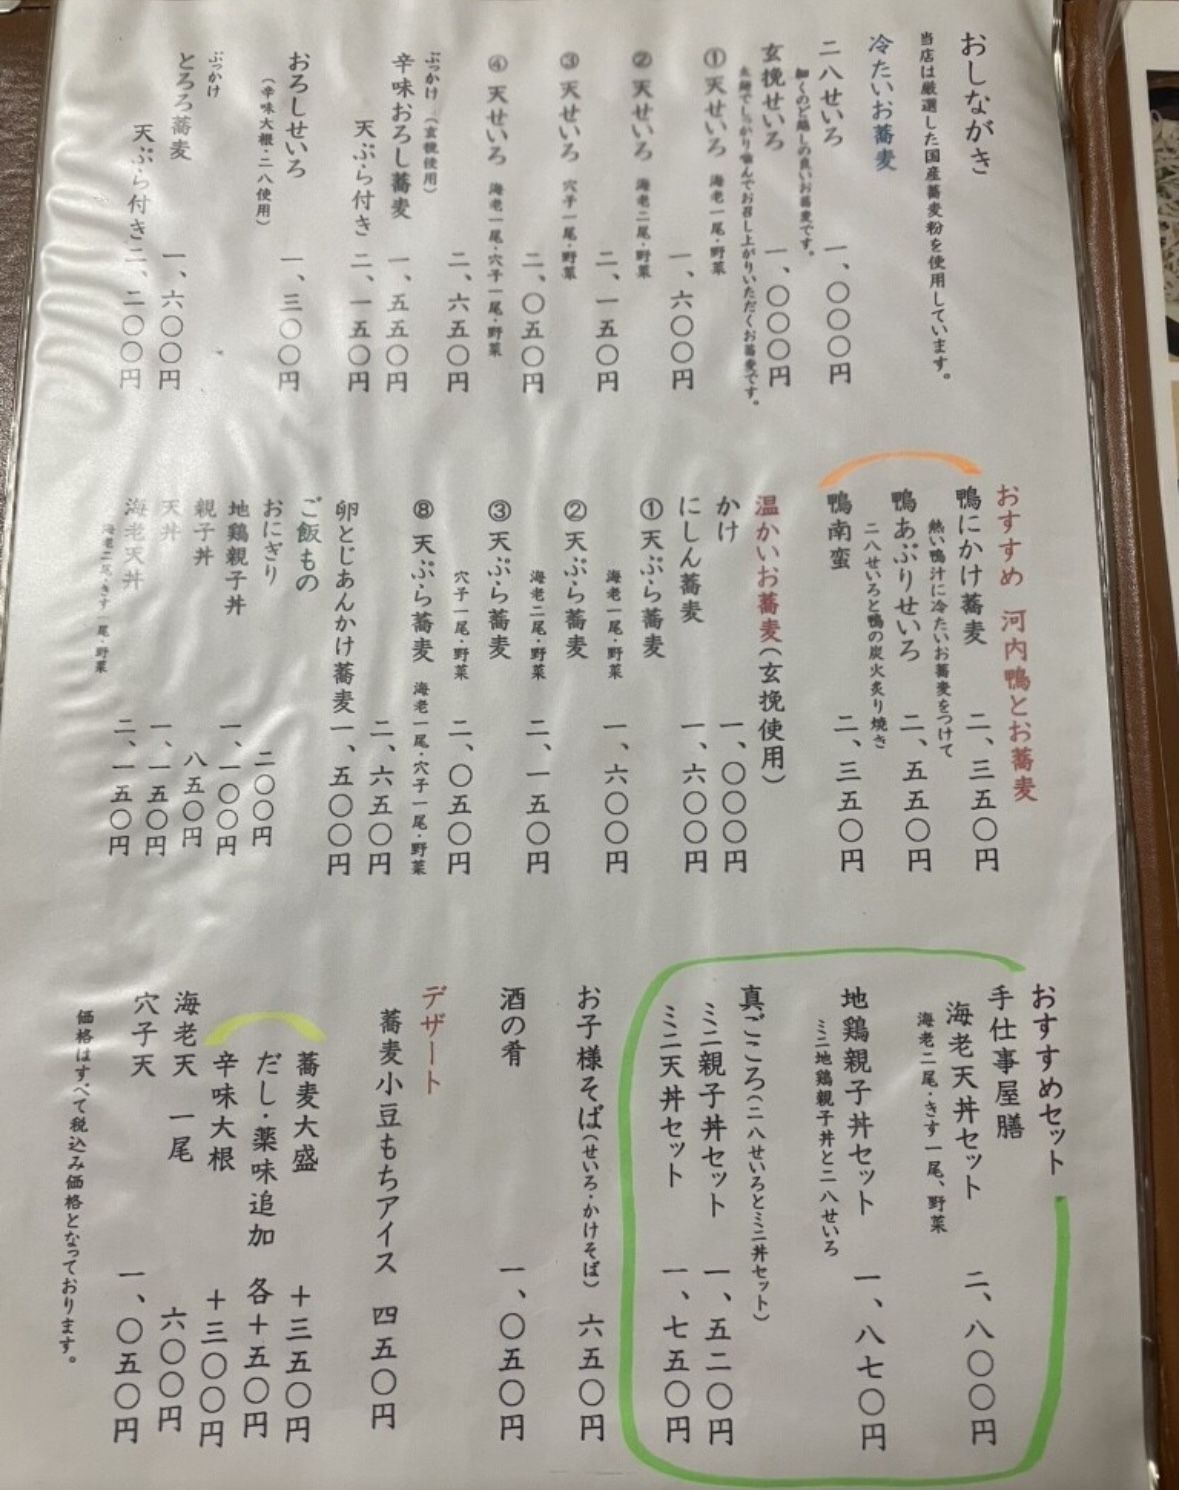 おしながき
当店は厳選した国産蕎麦粉を使用しています。
冷たいお蕎麦
二八せいろ 一、〇〇〇円
細くのど越しの良いお蕎麦です。
玄挽せいろ 一、〇〇〇円
お召し上がりいただくお蕎麦です。
① 天せいろ 一、六〇〇円
海老一尾・野菜
② 天せいろ 二、一五〇円
海老二尾・野菜
③ 天せいろ 二、〇五〇円
穴子一尾・野菜
④ 天せいろ 二、六五〇円
海老一尾・穴子一尾・野菜
ぶっかけ(玄挽使用)
辛味おろし蕎麦 一、五五〇円
天ぷら付き 二、一五〇円
おろしせいろ 一、三〇〇円
(辛味大根・二八使用)
ぶっかけ
とろろ蕎麦 一、六〇〇円
天ぷら付き 二、二〇〇円
おすすめ 河内鴨とお蕎麦
鴨にかけ蕎麦 二、三五〇円
熱い鴨汁に冷たいお蕎麦をつけて
鴨あぶりせいろ 二、五五〇円
二八せいろと鴨の炭火炙り焼き
鴨南蛮 二、三五〇円
温かいお蕎麦(玄挽使用)
かけ 一、〇〇〇円
にしん蕎麦 一、六〇〇円
① 天ぷら蕎麦 一、六〇〇円
海老一尾・野菜
② 天ぷら蕎麦 二、一五〇円
海老二尾・野菜
③ 天ぷら蕎麦 二、〇五〇円
穴子一尾・野菜
⑧ 天ぷら蕎麦 二、六五〇円
海老一尾・穴子一尾・野菜
卵とじあんかけ蕎麦 一、五〇〇円
ご飯もの
おにぎり 二〇〇円
地鶏親子丼 一、一〇〇円
親子丼 八五〇円
天丼 一、一五〇円
海老天丼 二、一五〇円
海老二尾・きす一尾・野菜
おすすめセット
手仕事屋膳
海老天丼セット 二、八〇〇円
海老二尾・きす一尾、野菜
地鶏親子丼セット 一、八七〇円
ミニ地鶏親子丼と二八せいろ
真ごころ(二八せいろとミニ丼セット)
ミニ親子丼セット 一、五二〇円
ミニ天丼セット 一、七五〇円
お子様そば(せいろ・かけそば) 六五〇円
酒の肴 一、〇五〇円
デザート
蕎麦小豆もちアイス 四五〇円
蕎麦大盛 +三五〇円
だし・薬味追加 各+五〇円
辛味大根 +三〇〇円
海老天 一尾 六〇〇円
穴子天 一、〇五〇円
価格はすべて税込み価格となっております。